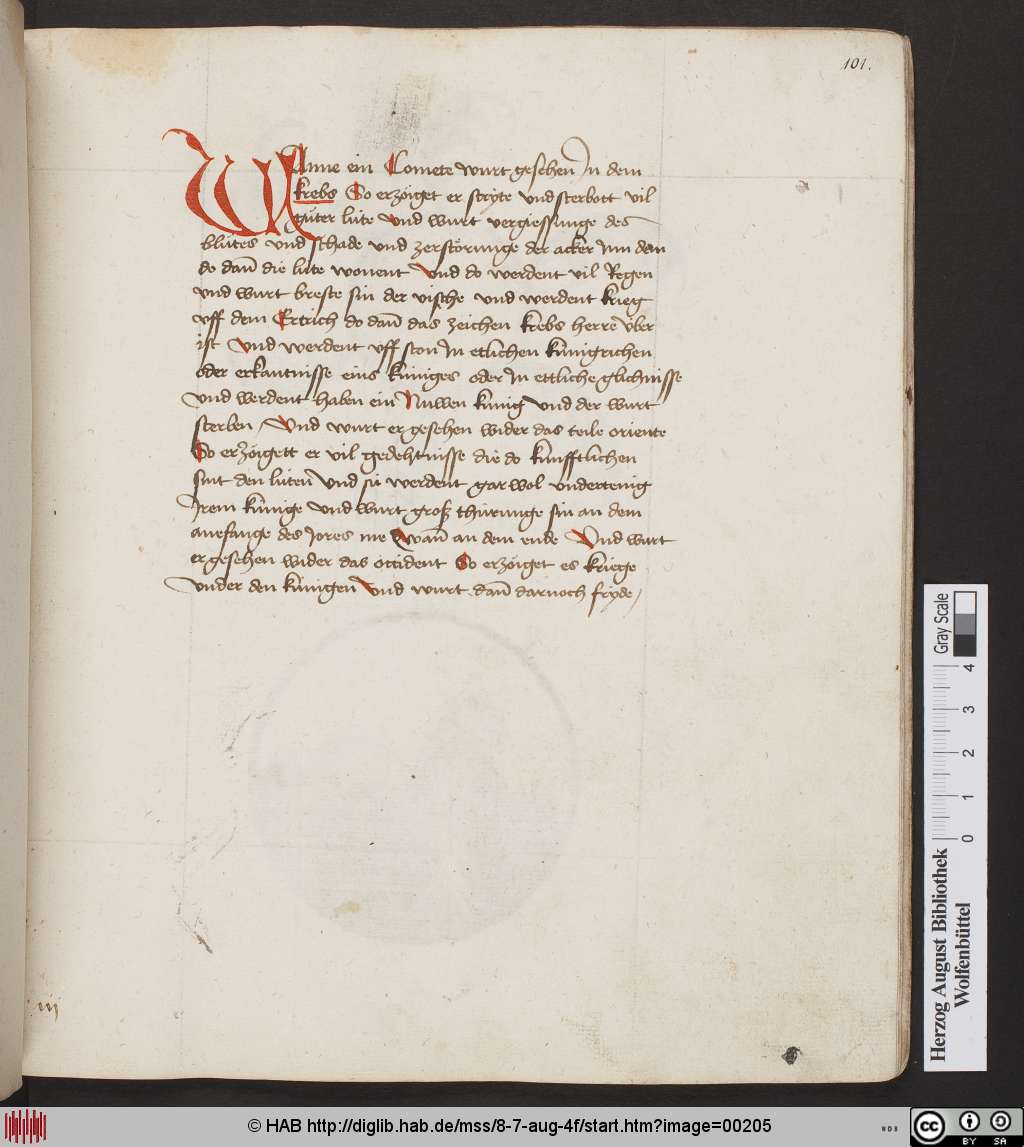 101.
WAnne ein Comete wurt gesehen In dem
krebs So erzöiget er stryte vnd sterbott vil
gůter lüte vnd wurt vergiessunge des
blůtes vnd schade vnd zerstörunge der acker Inn dem
do dan̄ die lüte wonent Vnd do werdent vil Regen
vnd wurt breste sin der vische vnd werdent krieg
vff dem Ertrich do dan̄ das zeichen krebs herre vber
ist Vnd werdent vff ston In etlichen künigrichen
oder erkantnisse eins küniges oder In ettliche glichnisse
Vnd werdent haben ein Nuwen künig Vnd der wurt
sterben / Vnd wurt er gesehen wider das teile oriente
So erzöigett er vil gedehtnisse die do kunfftlichen
sint den lüten Vnd sü werdent gar wol vndertenig
Irem künige Vnd wurt groß thürunge sin an dem
anefange des Jores me Wan̄ an dem ende Vnd wurt
er gesehen wider das occident So erzöiget es kriege
vnder den künigen Vnd wurt dan̄ darnoch fryde /
iij
Herzog August Bibliothek
Wolfenbüttel
0 1 2 3 4
Gray Scale
© HAB http://diglib.hab.de/mss/8-7-aug-4f/start.htm?image=00205
WDB
cc BY SA